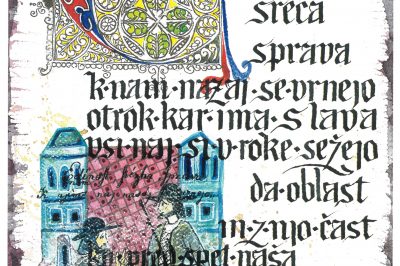 sreča
sprava
k·nam·nazaj·se·vrnejo
otrok·kar·ima·slava
vsi·naj·si·v·roke·sežejo
da·oblast
in·z·njo·čast
ko·pred·spet·naša